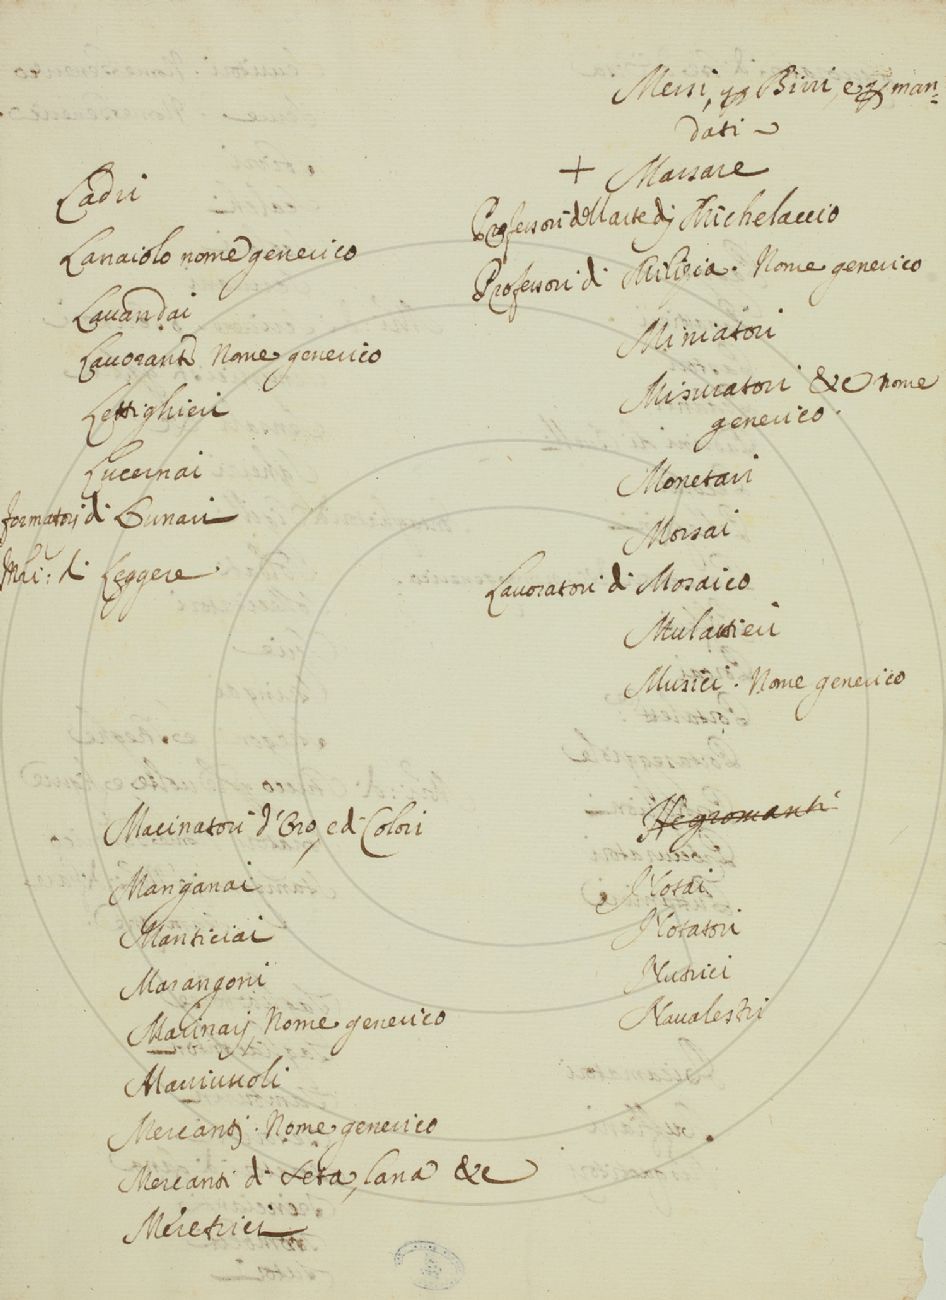 Ladri
Lanaiolo nome generico
Lavandai
Lavoranti Nome generico
Lettighieri
Lucernai
formatori di Lunari
Mri: di Leggere
Macinatori d'Oro, ed Colori
Manganai
Manticiai
Marangoni
Marinaij Nome generico
Mercanti. Nome generico
Mercanti di Seta, lana &c
Meretrici
Messi, Birri, e man=
dati
+ Massare
Professori dell'arte di Michelaccio
Professori di Milizia. Nome generico
Miniatori
Misuratori &c nome
generico.
Monetari
Morsai
Lavoratori di Mosaico
Mulattieri
Musici. Nome generico
Negromanti
Notai
Notatori
Nutrici
Navalestri